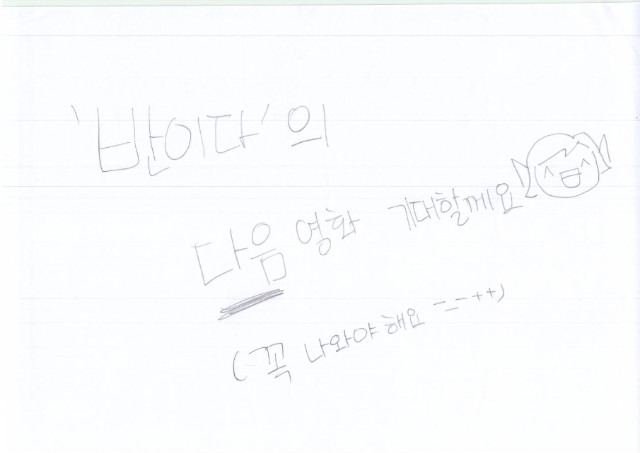 '반이다'의
다음 영화 기대할께요
(꼭 나와야 해요 -_-++)